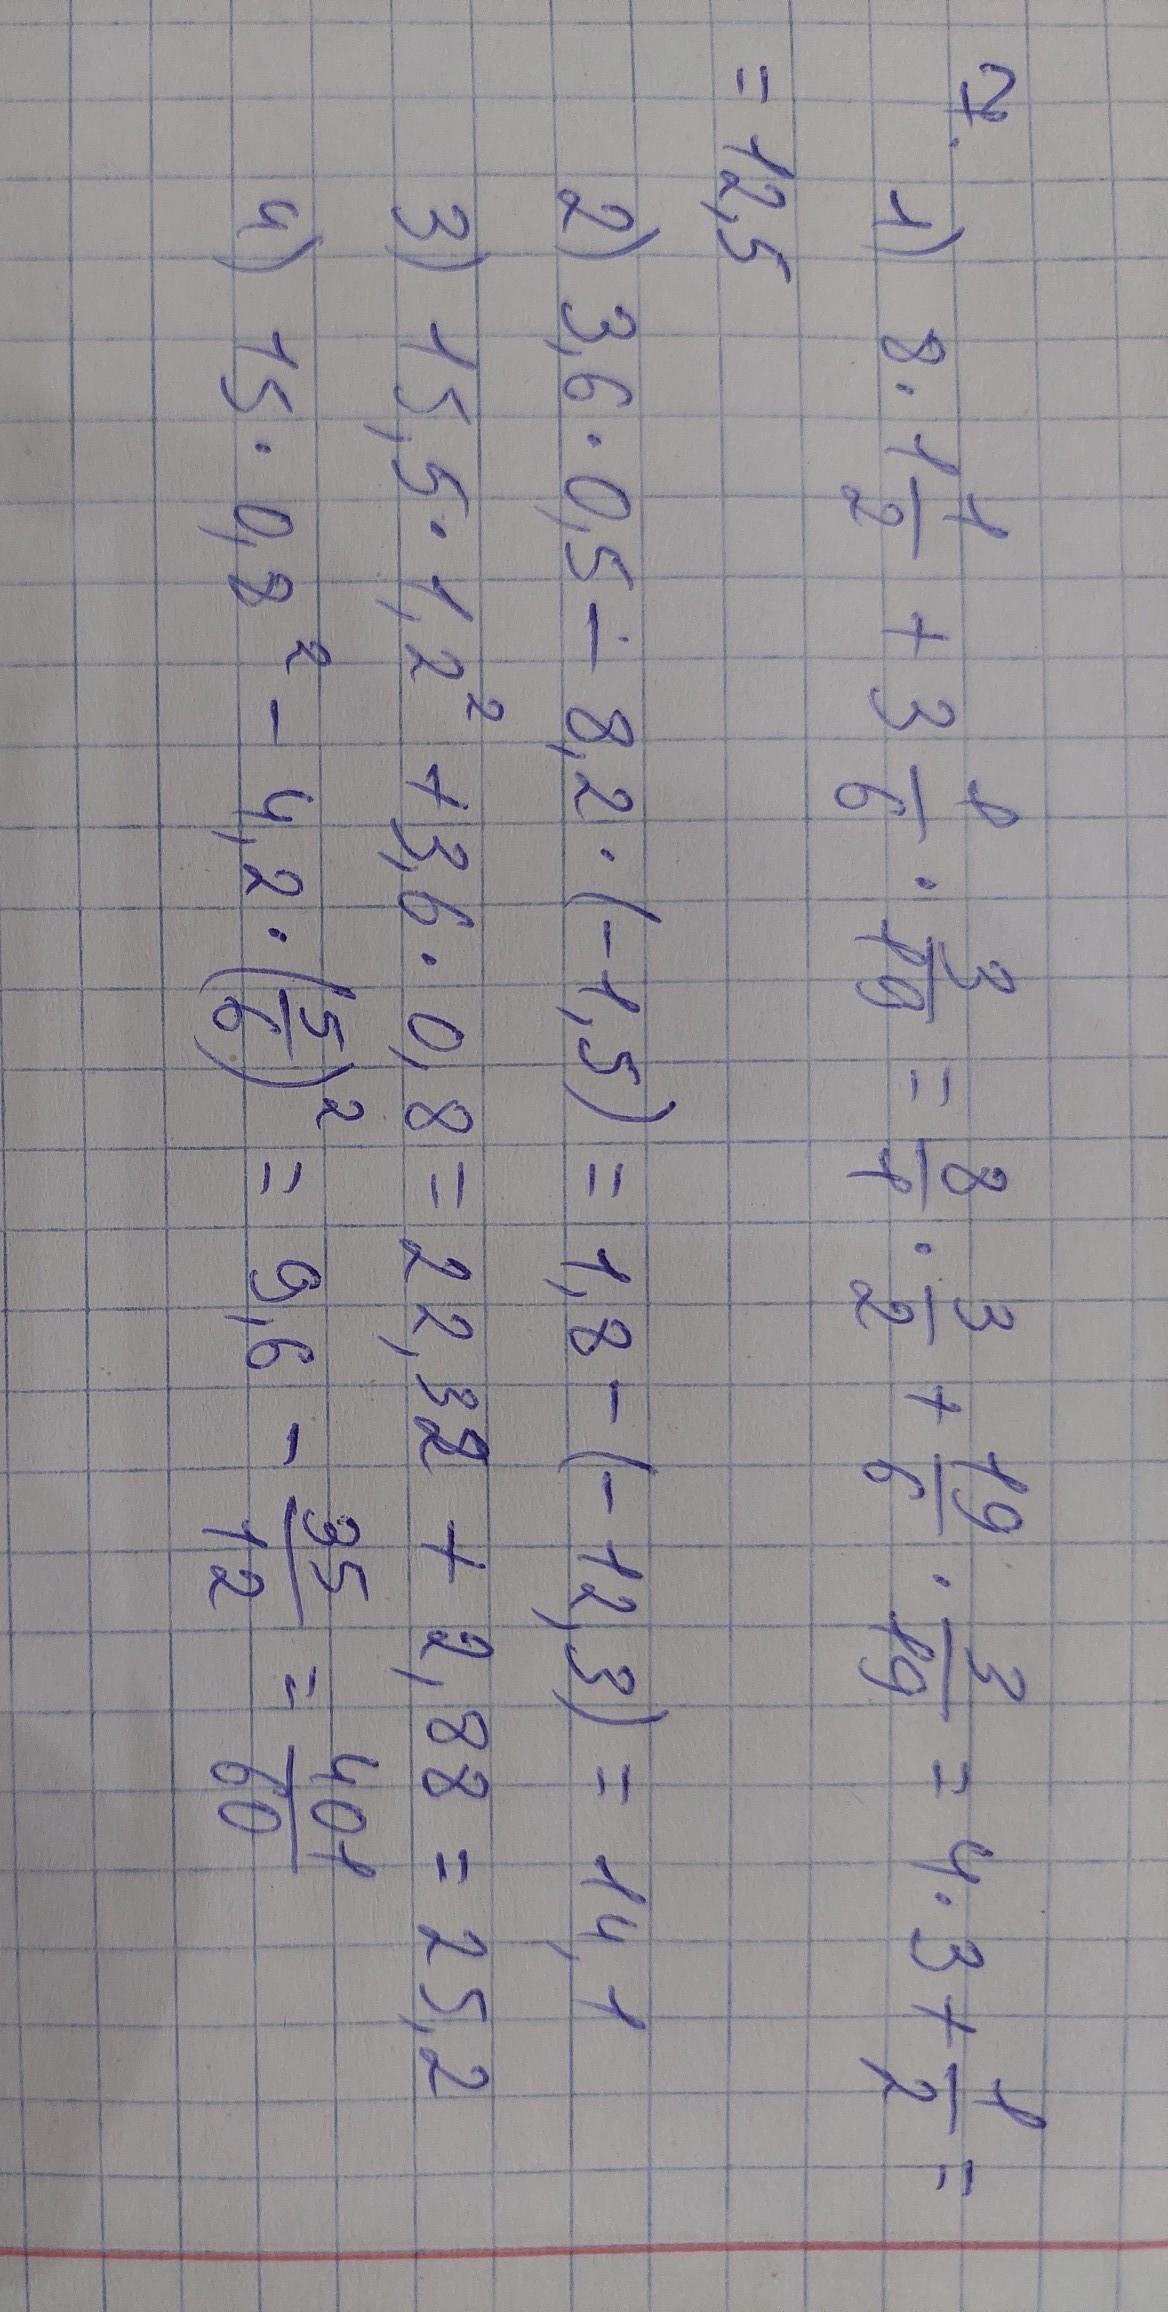 7.
1) 8 · 1 1/2 + 3 1/6 · 3/19 = 8/1 · 3/2 + 19/6 · 3/19 = 4 · 3 + 1/2 =
= 12,5
2) 3,6 · 0,5 - 8,2 · (-1,5) = 1,8 - (-12,3) = 14,1
3) 15,5 · 1,2² + 3,6 · 0,8 = 22,32 + 2,88 = 25,2
4) 15 · 0,8² - 4,2 · (5/6)² = 9,6 - 35/12 = 401/60